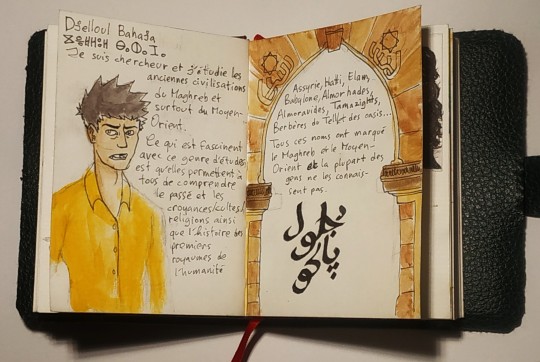 Djelloul Bahada
Je suis chercheur et j'étudie les
anciennes civilisations
du Maghreb et
surtout du Moyen-
Orient.
Ce qui est fascinent
avec ce genre d'études
est qu'elles permettent à
tous de comprendre
le passé et les
croyances/cultes/
religions ainsi
que l'histoire des
premiers
royaumes de
l'humanité
Assyrie, Hatti, Elam,
Babylone, Almorhades,
Almoravides, Tamazights,
Berbères du Tell et des oasis...
Tous ces noms ont marqué
le Maghreb et le Moyen-
Orient et la plupart des
gens ne les connais-
sent pas.